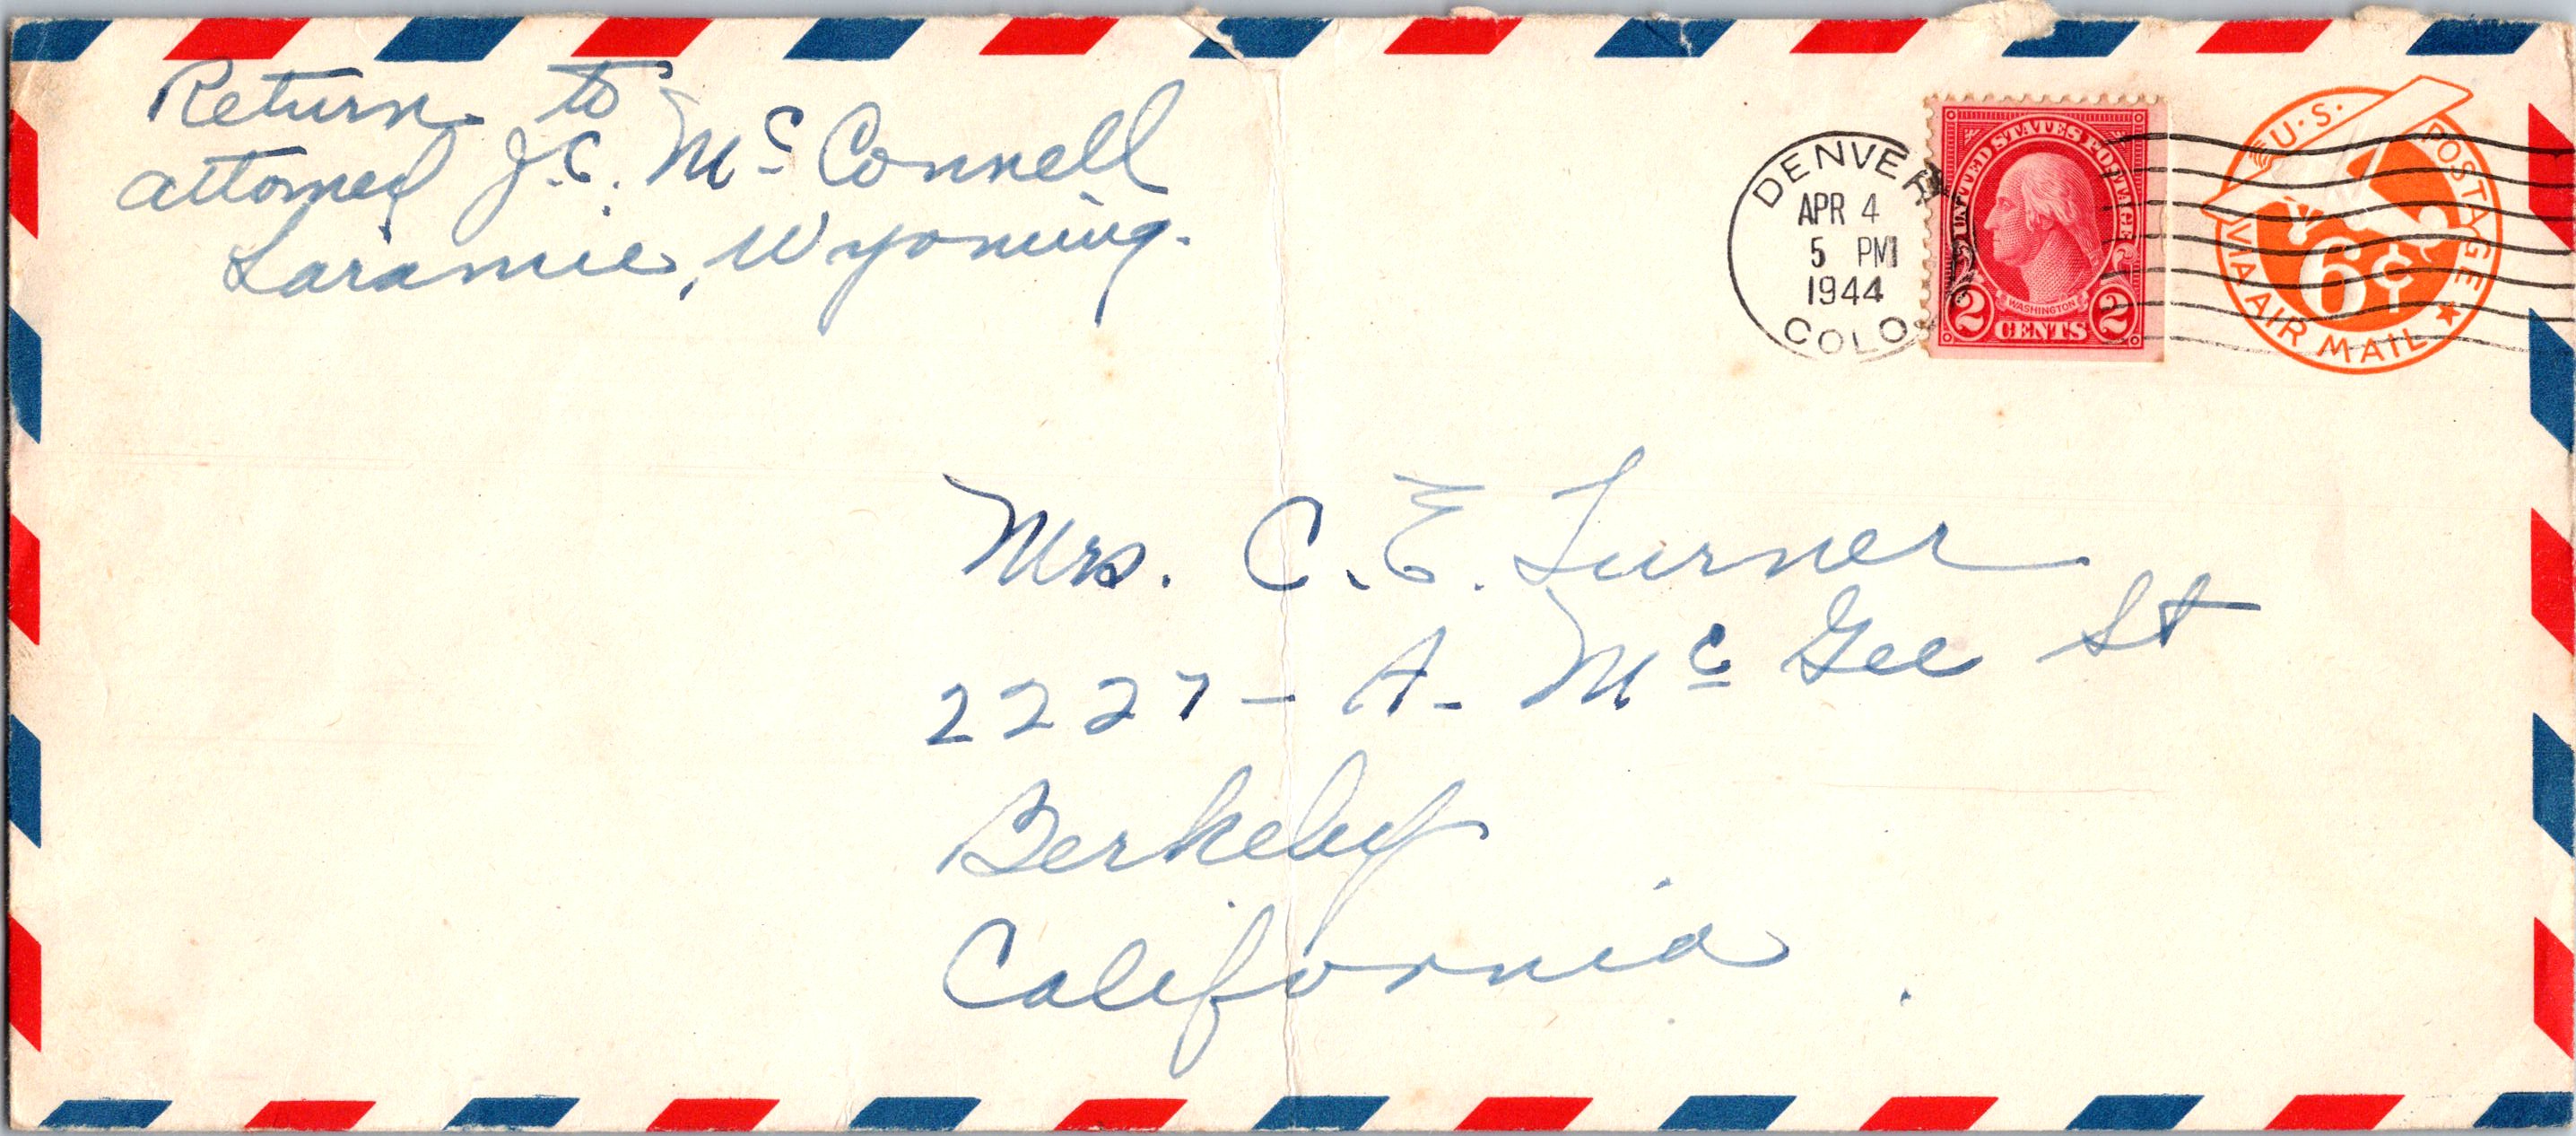 Return to
attorney J.C. McConnell
Laramie, Wyoming.
DENVER
APR 4
5 PM
1944
COLO.
UNITED STATES POSTAGE
WASHINGTON
2 CENTS 2
U.S. POSTAGE
6¢
VIA AIR MAIL
Mrs. C. E. Turner
2227 - A - Mc Gee St
Berkeley
California